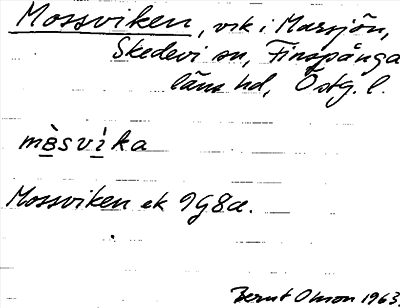 Mossviken, vik i Marsjön,
Skedevi sn, Finspånga
läns hd, Östg. l.
mɞ̀svìka
Mossviken ek 9G8a.
Bernt Olson 1963.